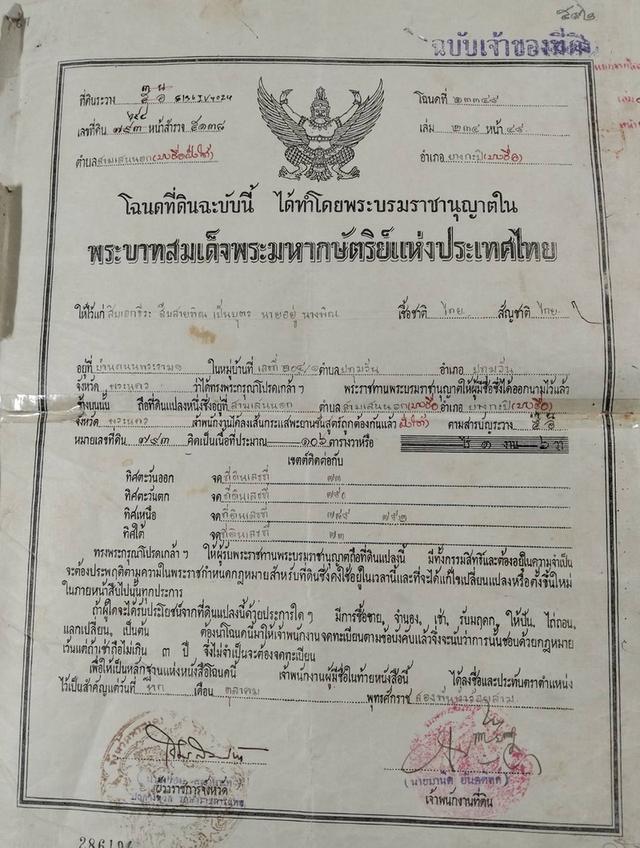 ฉบับเจ้าของที่ดิน
ที่ดินระวาง 5136 IV 4024
โฉนดที่ ๑๓๓๔๘
เลขที่ดิน ๗๙๓ หน้าสำรวจ ๕๑๓๘
เล่ม ๒๓๔ หน้า ๔๘
ตำบล สามเสนนอก
อำเภอ บางกะปิ
โฉนดที่ดินฉะบับนี้ ได้ทำโดยพระบรมราชานุญาตใน
พระบาทสมเด็จพระมหากษัตริย์แห่งประเทศไทย
ให้ไว้แก่ สิบเอก สืบสายพิณ เป็นบุตร นายอยู่ นางพิณ เชื้อชาติ ไทย สัญชาติ ไทย
อยู่ที่ บ้านถนนพระราม ๑ ในหมู่บ้านที่ เลขที่ ตำบล ปทุมวัน อำเภอ ปทุมวัน
จังหวัด พระนคร ว่าได้ทรงพระกรุณาโปรดเกล้า ฯ พระราชทานพระบรมราชานุญาตให้ผู้มีชื่อซึ่งได้ออกนามไว้แล้ว
ข้างบนนั้น ถือที่ดินแปลงหนึ่งซึ่งอยู่ที่ สามเสนนอก ตำบล สามเสนนอก อำเภอ บางกะปิ
จังหวัด พระนคร เจ้าพนักงานได้ลงเส้นกระแสพะยานชันสูตรถูกต้องกันแล้ว ตามสารบัญระวาง
หมายเลขที่ดิน ๗๙๓ คิดเป็นเนื้อที่ประมาณ ๑๐๖ ตารางวาหรือ ไร่ ๑ งาน ๖ วา
เขตต์ติดต่อกับ
ทิศตะวันออก จด ที่ดินเลขที่ ๗๓
ทิศตะวันตก จด ที่ดินเลขที่ ๗๙๑
ทิศเหนือ จด ที่ดินเลขที่ ๗๘๙ ๗๙๒
ทิศใต้ จด ที่ดินเลขที่ ๗๓
ทรงพระกรุณโปรดเกล้า ฯ ให้ผู้รับพระราชทานพระบรมราชานุญาตถือที่ดินแปลงนี้ มีทั้งกรรมสิทธิ์และต้องอยู่ในความจำเป็น
จะต้องประพฤติตามความในพระราชกำหนดกฎหมายสำหรับที่ดินซึ่งคงใช้อยู่ในเวลานี้และที่จะได้แก้ไขเปลี่ยนแปลงหรือตั้งขึ้นใหม่
ในภายหน้าสืบไปนั้นทุกประการ
ถ้าผู้ใดจะได้รับประโยชน์จากที่ดินแปลงนี้ด้วยประการใด ๆ มีการซื้อขาย, จำนอง, เช่า, รับมฤดก, ให้ปัน, ไถ่ถอน,
แลกเปลี่ยน, เป็นต้น ต้องนำโฉนดนี้มาให้เจ้าพนักงานจดทะเบียนตามข้อบังคับแล้วจึ่งจะนับว่าการนั้นชอบด้วยกฎหมาย
เว้นแต่ถ้าเช่าถือไม่เกิน ๓ ปี จึ่งไม่จำเป็นจะต้องจดทะเบียน
เพื่อให้เป็นหลักฐานแห่งหนังสือโฉนดนี้ เจ้าพนักงานผู้มีชื่อในท้ายหนังสือนี้ ได้ลงชื่อและประทับตราตำแหน่ง
ไว้เป็นสำคัญแต่วันที่ หก เดือน ตุลาคม พุทธศักราช สองพันห้าร้อยสาม
ข้าราชการจังหวัด
เจ้าพนักงานที่ดิน